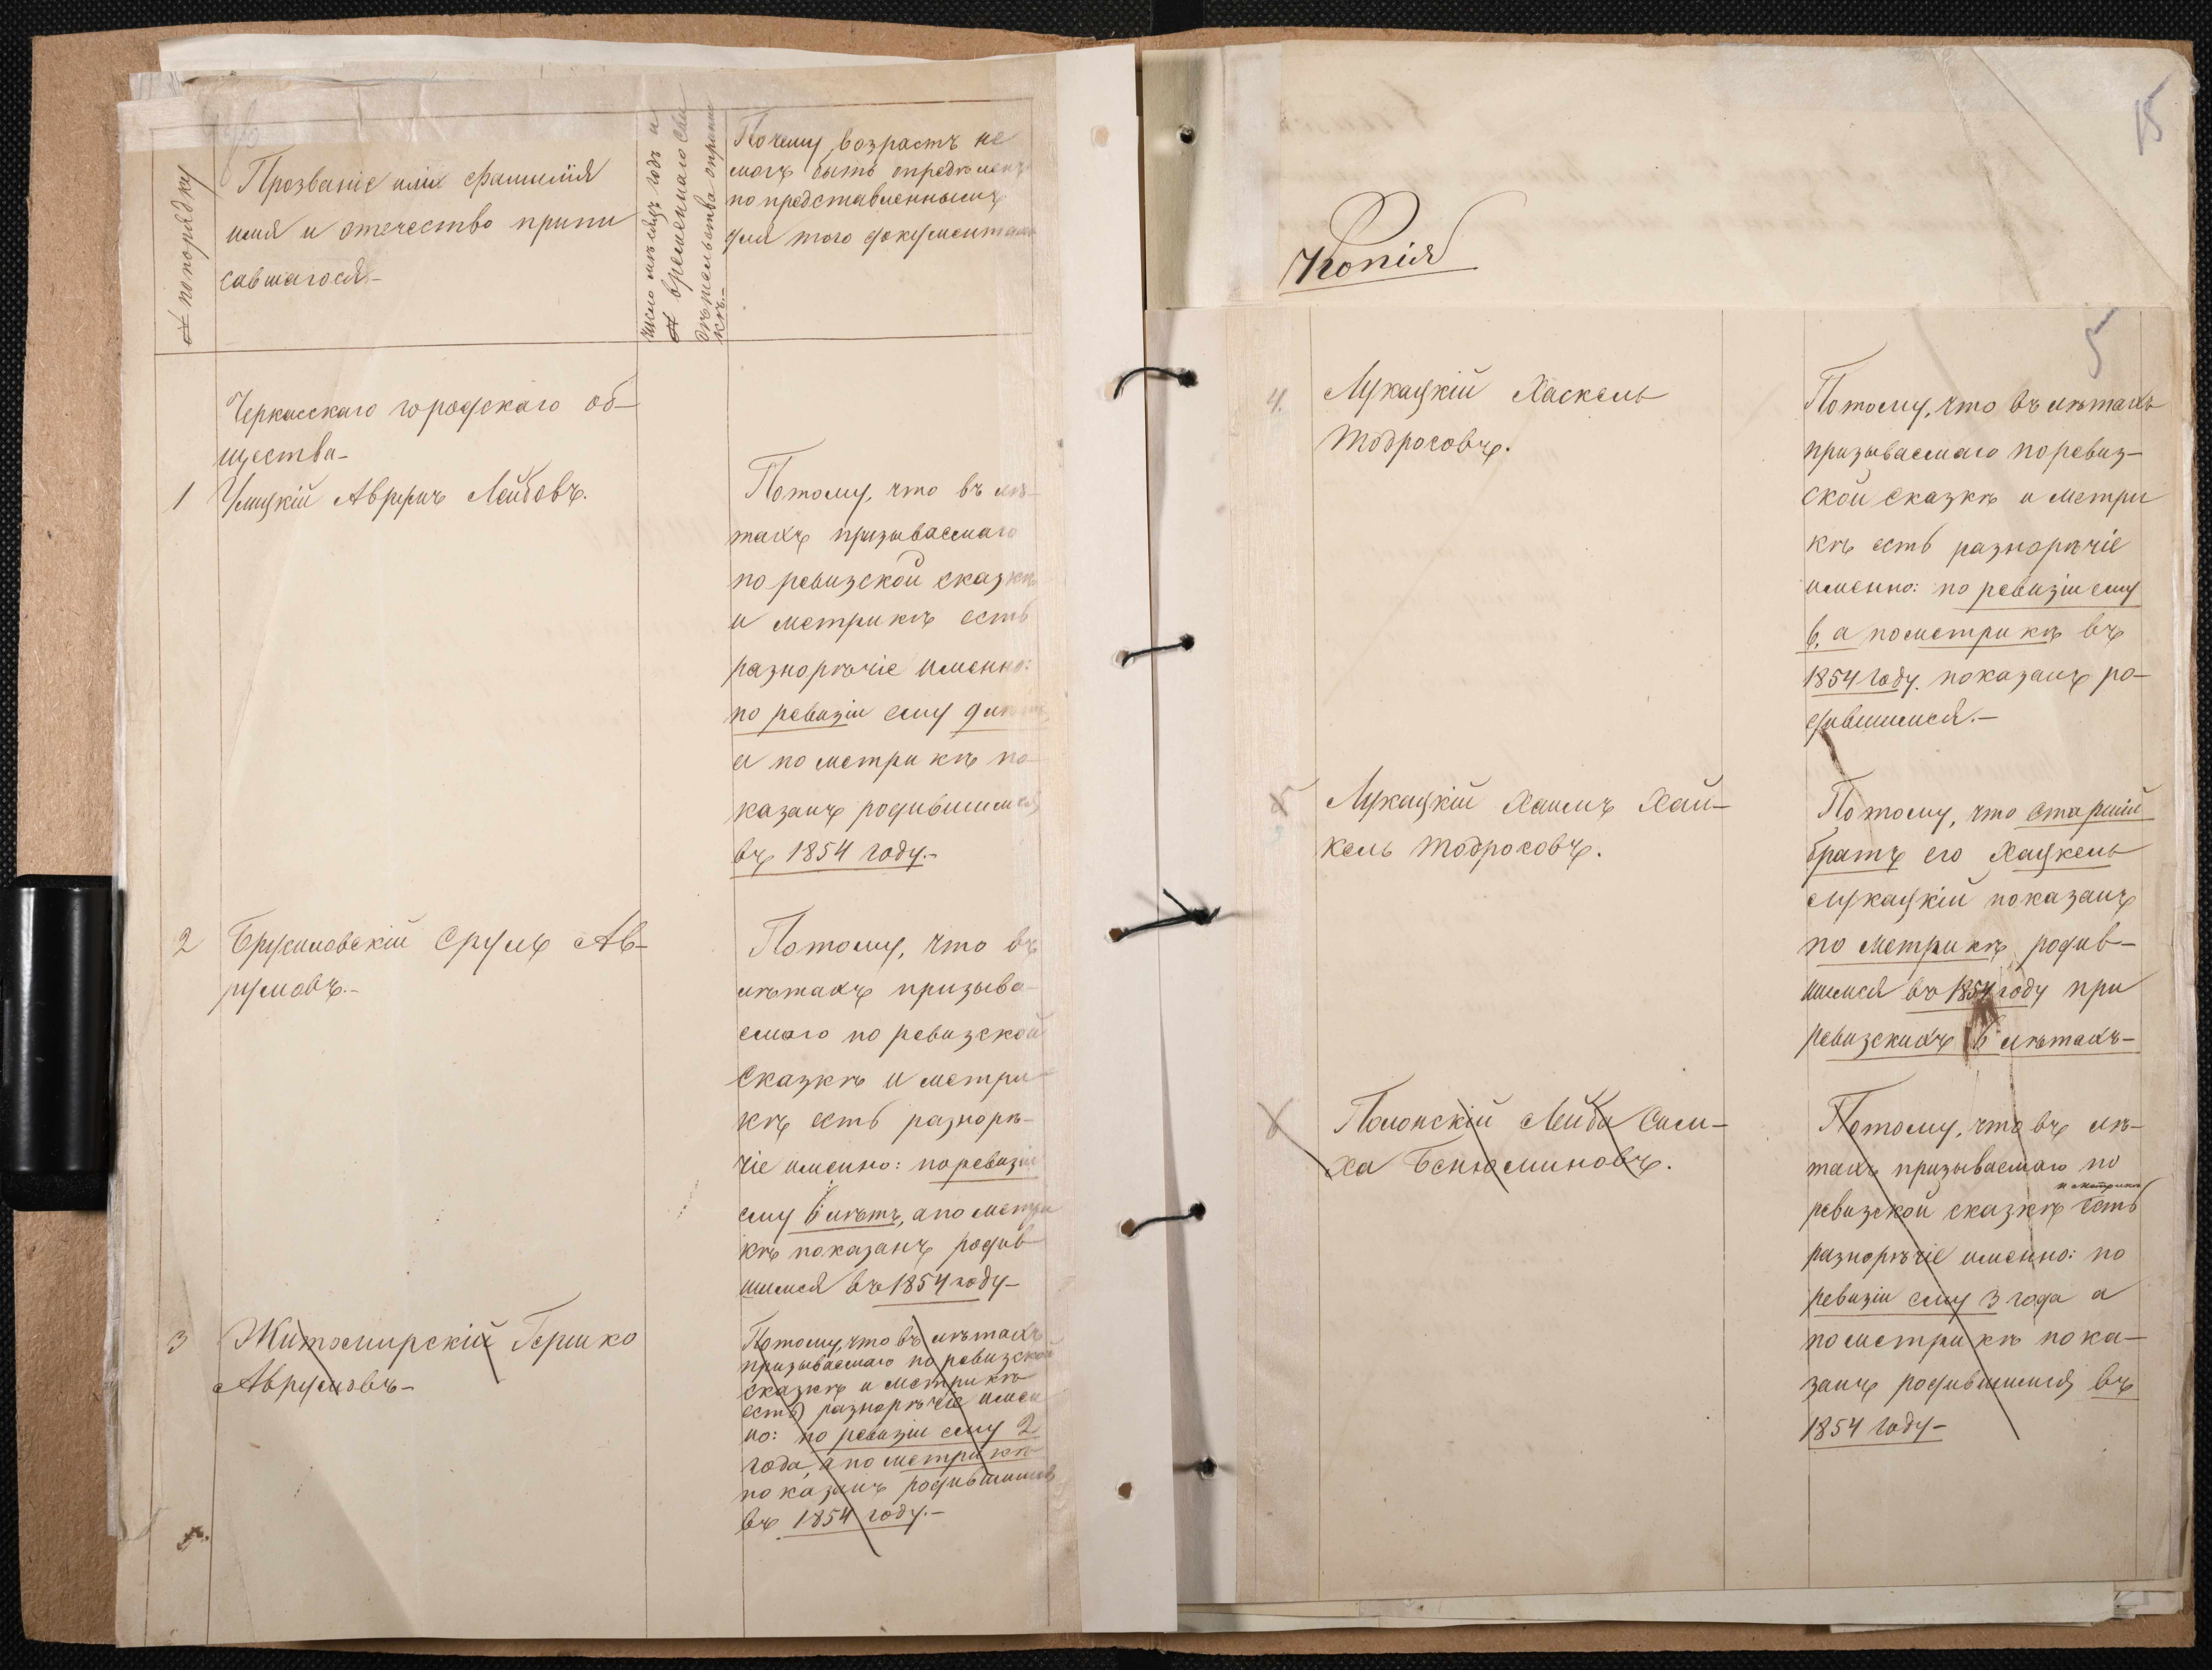 № по порядку
Прозваніе или фамилія
имя и отечество припи
савшагося.-
число мѣсяцъ годъ и
№ временнаго сви
дѣтельства о припис
кѣ.-
Почему возрастъ не
могъ быть опредѣленъ
по представленнымъ
для того документамъ
Черкасскаго городскаго об-
щества-
1 Улицкій Аврумъ Лейбовъ.
Потому, что въ лѣ-
тахъ призываемаго
по ревизской сказкѣ
и метрикѣ есть
разнорѣчіе именно:
по ревизіи ему 9
а по метрикѣ по-
казанъ родившимся
въ 1854 году.-
2 Брусиловскій Сруль Ав-
румовъ.-
Потому, что въ
лѣтахъ призыва-
емаго по ревизской
сказкѣ и метри-
кѣ есть разнорѣ-
чіе именно: по ревизіи
ему 6 лѣтъ, а по метри
кѣ показанъ родив
шимся въ 1854 году-
3 Житомирскій Гершко
Аврумовъ-
Потому, что въ лѣтахъ
призываемаго по ревизской
сказкѣ и метрикѣ
есть разнорѣчіе имен
но: по ревизіи ему 2
года, а по метрикѣ
показанъ родившимся
въ 1854 году.-
15
Копія
5
4. Лукацкій Хаскель
Тодросовъ.
Потому, что въ лѣтахъ
призываемаго по ревиз-
ской сказкѣ и метри
кѣ есть разнорѣчіе
именно: по ревизіи ему
6, а по метрикѣ въ
1854 году показанъ ро-
дившимся.-
5 Лукацкій Хаимъ Хай-
кель Тодросовъ.
Потому, что старшій
братъ его Хацкель
Лукацкій показанъ
по метрикѣ родив-
шимся въ 1854 году при
ревизскихъ 6 лѣтахъ-
6 Полонскій Лейба Сим-
ха Бенюминовъ.
Потому, что въ лѣ-
тахъ призываемаго по
и метрикѣ
ревизской сказкѣ есть
разнорѣчіе именно: по
ревизіи ему 3 года а
по метрикѣ пока-
занъ родившимся въ
1854 году-